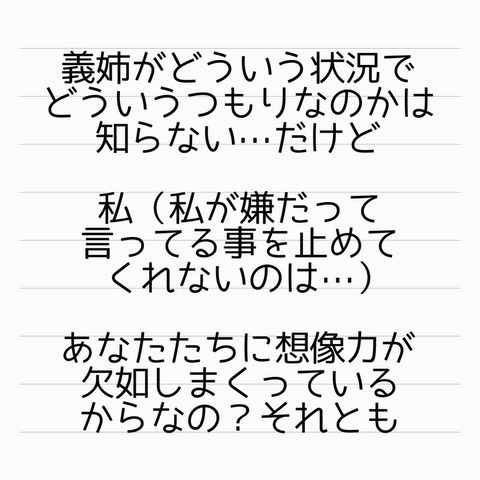 義姉がどういう状況で
どういうつもりなのかは
知らない…だけど
私（私が嫌だって
言ってる事を止めて
くれないのは…）
あなたたちに想像力が
欠如しまくっている
からなの？それとも